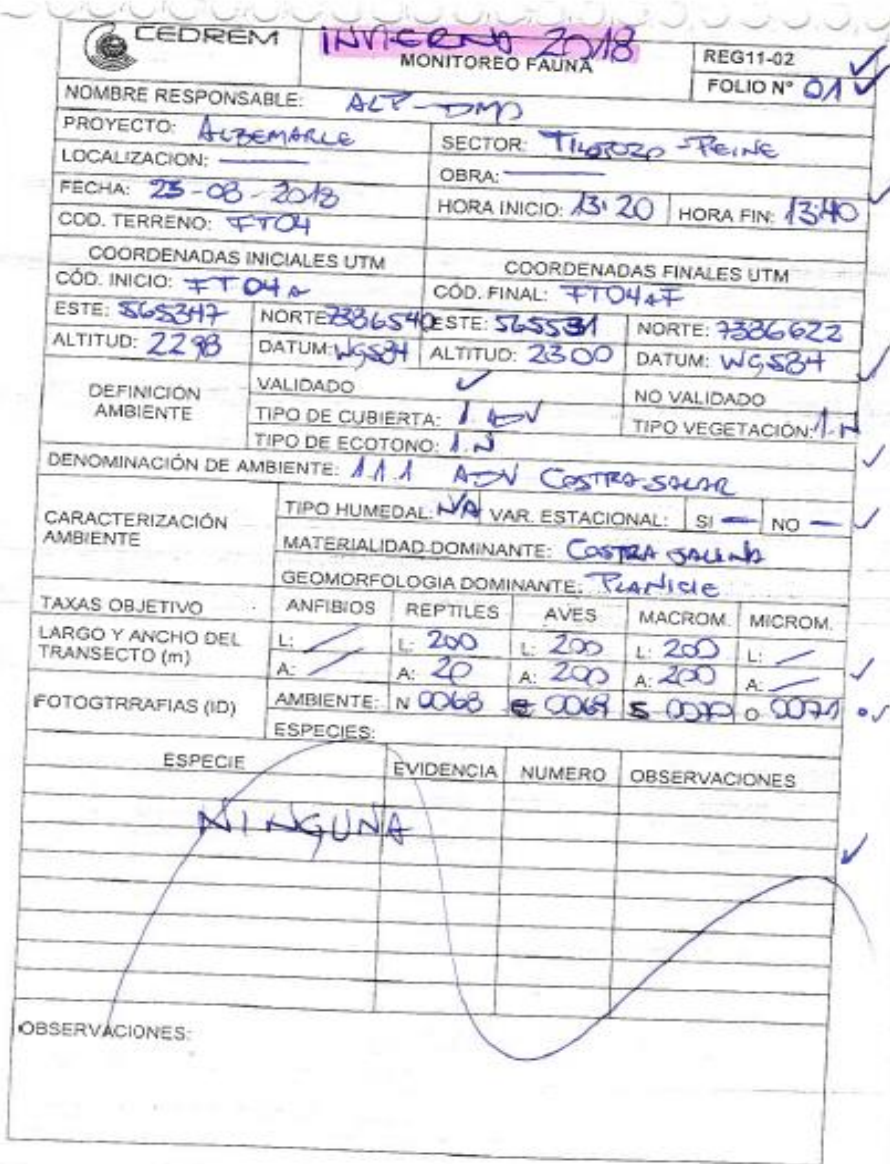 CEDREM INVIERNO 2018 REG11-02
MONITOREO FAUNA FOLIO N° 01
NOMBRE RESPONSABLE: ALP-DMD
PROYECTO: ALBEMARLE SECTOR: TILOPOZO - PEINE
LOCALIZACION: — OBRA: —
FECHA: 25-08-2018 HORA INICIO: 13:20 HORA FIN: 13:40
COD. TERRENO: FT04
COORDENADAS INICIALES UTM COORDENADAS FINALES UTM
CÓD. INICIO: FT04a CÓD. FINAL: FT04aF
ESTE: 565347 NORTE: 7386540 ESTE: 565531 NORTE: 7386622
ALTITUD: 2298 DATUM: WGS84 ALTITUD: 2300 DATUM: WGS84
DEFINICIÓN AMBIENTE VALIDADO ✓ NO VALIDADO
TIPO DE CUBIERTA: 1. ADV TIPO VEGETACIÓN: 1.N
TIPO DE ECOTONO: 1.N
DENOMINACIÓN DE AMBIENTE: 1.1.1 ADV COSTRA SALAR
CARACTERIZACIÓN AMBIENTE TIPO HUMEDAL: N/A VAR. ESTACIONAL: SI — NO —
MATERIALIDAD DOMINANTE: COSTRA SALINA
GEOMORFOLOGIA DOMINANTE: PLANICIE
TAXAS OBJETIVO ANFIBIOS REPTILES AVES MACROM. MICROM.
LARGO Y ANCHO DEL TRANSECTO (m) L: / L: 200 L: 200 L: 200 L: /
A: / A: 20 A: 200 A: 200 A: /
FOTOGTRRAFIAS (ID) AMBIENTE: N 0068 E 0069 S 0070 O 0071
ESPECIES:
ESPECIE EVIDENCIA NUMERO OBSERVACIONES
NINGUNA
OBSERVACIONES: